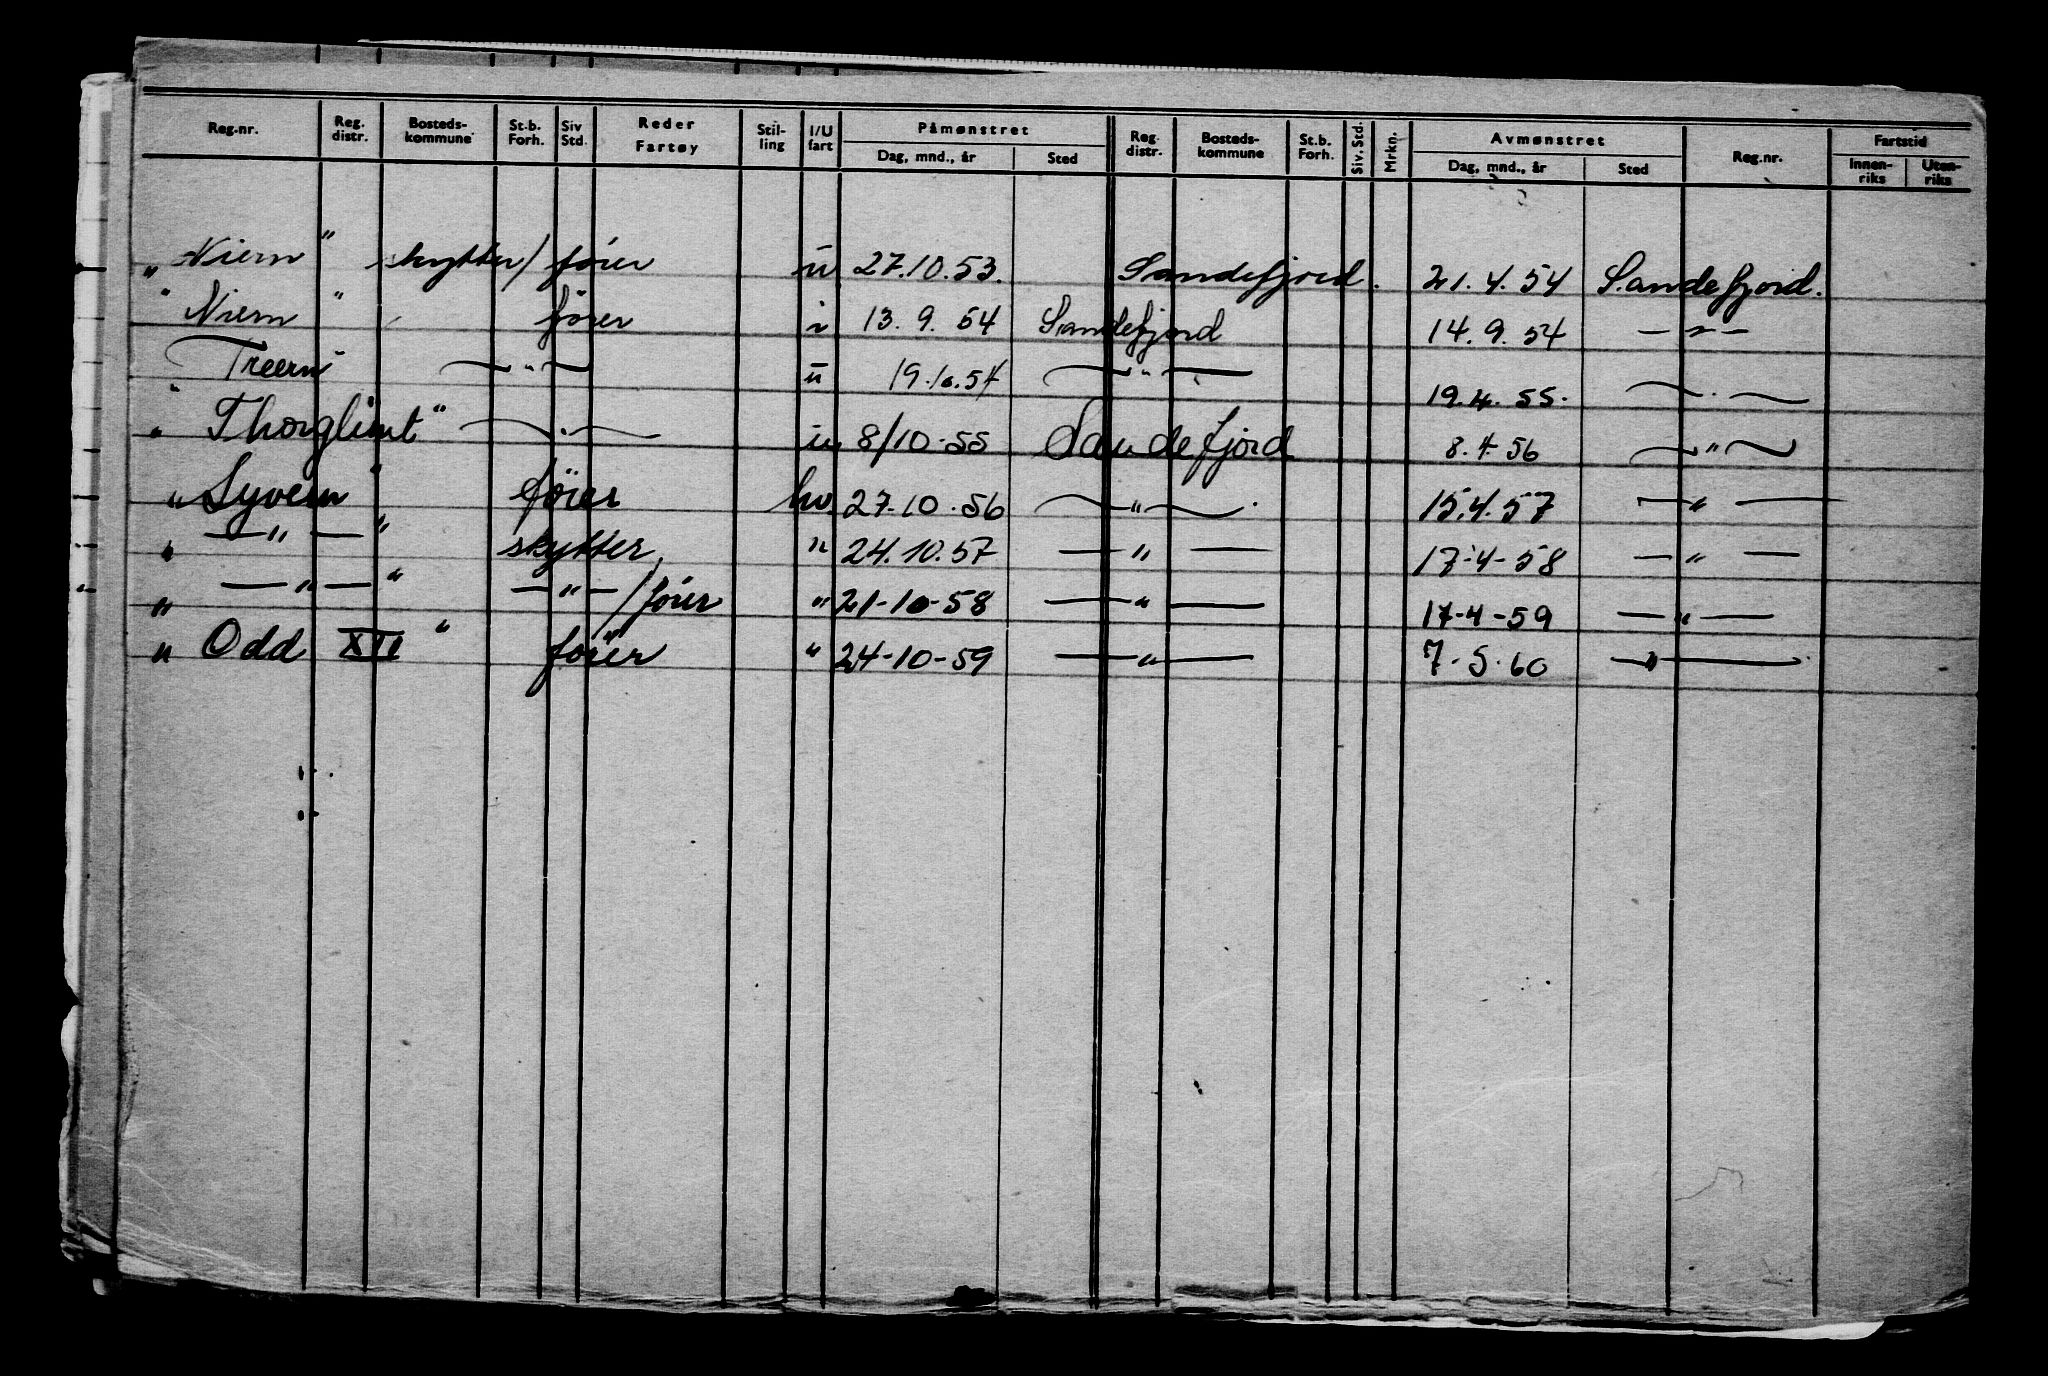 Reg.nr. Reg. distr. Bosteds-kommune St.b. Forh. Siv Std. Reder Fartøy Stil-ling I/U fart Påmønstret Dag, mnd., år Sted Reg. distr. Bosteds-kommune St.b. Forh. Siv. Std. Mrkn. Avmønstret Dag, mnd., år Sted Reg.nr. Fartstid Innen-riks Uten-riks
„ Niern " skytter/fører u 27.10.53. Sandefjord. 21.4.54 Sandefjord.
" Niern " fører i 13.9.54 Sandefjord 14.9.54 — " —
" Treern " — " — u 19.10.54 — " — 19.4.55. — . —
" Thorglimt " — . — u 8/10-55 Sandefjord 8.4.56 — " —
" Syvern " fører hv. 27.10.56 — " — 15.4.57 — " —
" — " — " skytter " 24.10.57 — " — 17-4-58 — " —
" — " — " — " —/fører " 21-10-58 — " — 17-4-59 — " —
" Odd XII " fører " 24-10-59 — " — 7.5.60 — " —